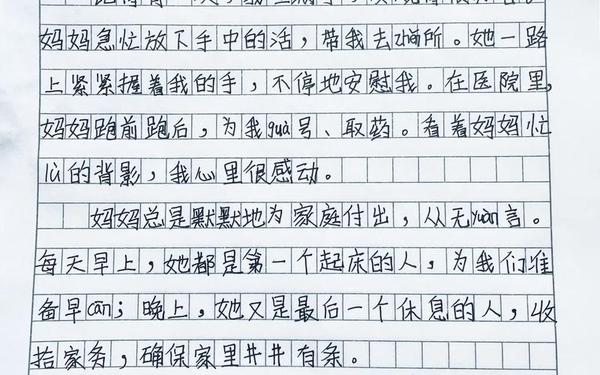 妈妈急忙放下手中的活，带我去zhěn所。她一路
上紧紧握着我的手，不停地安慰我。在医院里，
妈妈跑前跑后，为我guà号、取药。看着妈妈忙
lù的背影，我心里很感动。
妈妈总是默默地为家庭付出，从无yuàn言。
每天早上，她都是第一个起床的人，为我们准
备早cān；晚上，她又是最后一个休息的人，收
拾家务，确保家里井井有条。